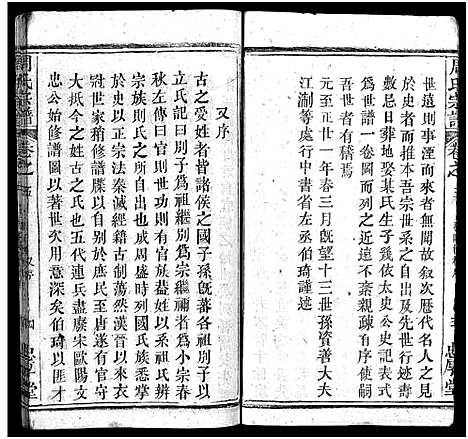 周氏宗譜
卷之
世遠則事湮而來者無聞故敘次歷代名人之見
於史者而推本吾宗世系之自出及先世行述生
數忌日葬地娶某氏生子某依太史公史記表式
為世譜一卷圖而列之近遠不紊親疎有序用傳
吾世者有稽焉
元至正廿一年春三月既望十三世孫資善大夫
江淛等處行中書省左丞伯琦謹識
又序
古之受姓者皆諸侯之國子孫既蕃各祖別子了
立氏記曰別子為祖繼別為宗繼禰者為小宗春
秋左傳曰官有世功則有官族以史以祝系祖氏辨
宗族則氏之所自出也成周盛時列國氏族悉掌
於史以正宗法秦滅經籍古制蕩然漢晉以來
冠世家稍修譜牒以自別於庶民至唐遂有官守
大抵今之姓古之氏也五代兵盡廢宋歐陽文
忠公始修譜圖以著世次用意深矣伯琦以匪才
周氏宗譜
卷之一
又序
忠厚堂